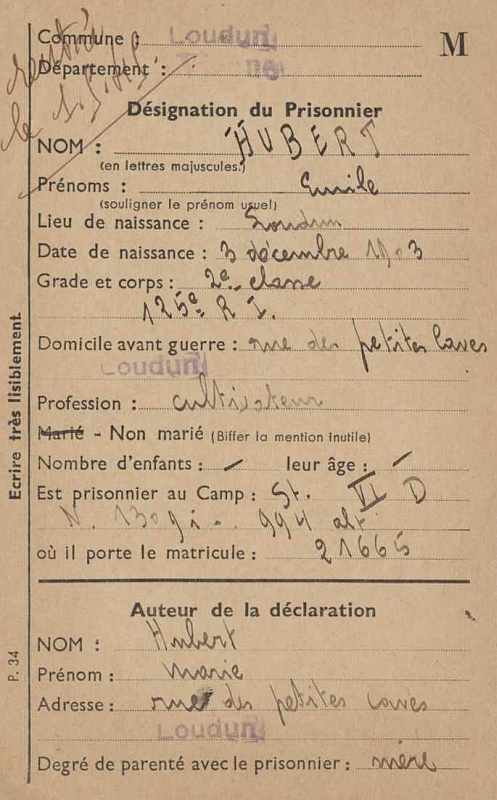 Commune : Loudun
M
Département :
rentré
le
Désignation du Prisonnier
NOM : HUBERT
(en lettres majuscules.)
Prénoms : Emile
(souligner le prénom usuel)
Lieu de naissance : Loudun
Date de naissance : 3 décembre 1903
Grade et corps : 2e classe
125e R I.
Domicile avant guerre : rue des petites Caves
Loudun
Profession : cultivateur
Marié - Non marié (Biffer la mention inutile)
Nombre d'enfants : - leur âge : -
Est prisonnier au Camp : St. VI D
N. 994
où il porte le matricule : 21665
Auteur de la déclaration
NOM : Hubert
Prénom : Marie
Adresse : rue des petites caves
Loudun
Degré de parenté avec le prisonnier : mère
Ecrire très lisiblement.
P. 34